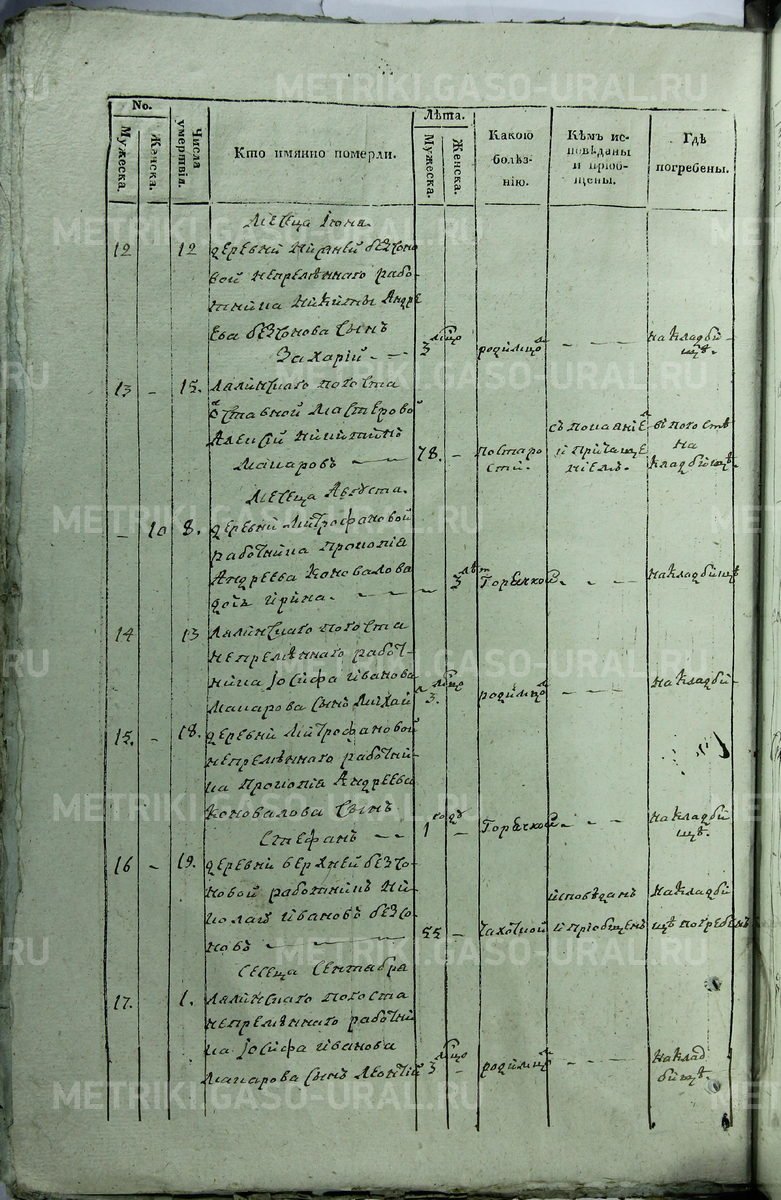 No.
Мужеска.
Женска.
Числа умертвія.
Кто имянно померли.
Лѣта.
Мужеска.
Женска.
Какою болѣзнію.
Кѣмъ исповѣданы и пріобщены.
Гдѣ погребены.
Месеца Іюня
12 12 деревни нижней безсоно
вой непремѣннаго рабо-
тника никиты Андре
ева безсонова сынъ
Захарій 3 мѣцо родимцо на кладби-
щѣ.
13 - 15. Лялинскаго погоста
отставной мастеровой
Алексій никитинъ
Макаровъ 78. - по старо
сти. съ покаяніе
и причаще
ніемъ. в погостѣ
на
кладбищѣ.
Месеца Августа.
- 10 8. деревни Митрофановой
работника Прокопія
Андреева Коновалова
дочь ирина. 3 лѣт Горячкой на кладбищѣ
14 13 Лялинскаго погоста
непремѣннаго работ-
ника Іосифа иванова
Макарова сынъ Михаи 3. мѣцо родимцо на кладби-
15. - 18. деревни Митрофановой
непремѣннаго работни-
ка Прокопія Андреева
Коновалова сынъ
Стефанъ 1 годъ - Горячкой на кладби
щѣ.
16 - 19. деревни верхней безсо-
новой работникъ ни-
колай ивановъ безсо-
новъ 55 - чахоткой исповѣданъ
и пріобщенъ на кладби
щѣ погребенъ
Сесеца Сентября
17. 1. Лялинскаго погоста
непремѣннаго работни
ка Іосифа иванова
Макарова сынъ Леонтій 3 мѣцо - родимцо на клад
бищѣ.
METRIKI.GASO-URAL.RU